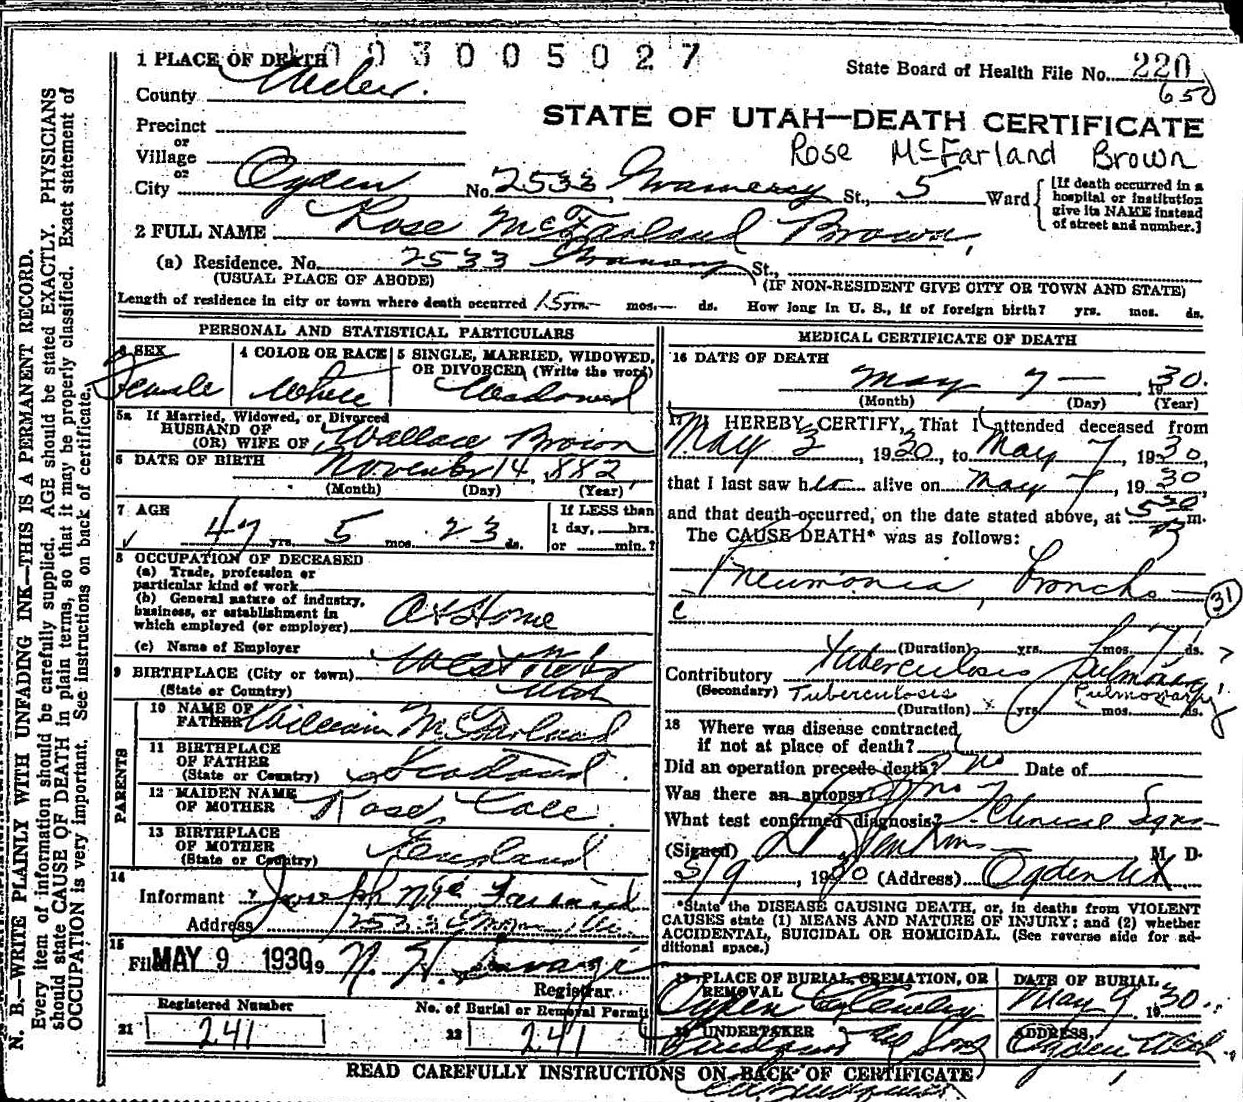 N. B.—WRITE PLAINLY WITH UNFADING INK—THIS IS A PERMANENT RECORD.
Every item of information should be carefully supplied. AGE should be stated EXACTLY. PHYSICIANS
should state CAUSE OF DEATH in plain terms, so that it may be properly classified. Exact statement of
OCCUPATION is very important. See instructions on back of certificate.
1 PLACE OF DEATH 003005027
State Board of Health File No. 220
650
County Weber.
STATE OF UTAH—DEATH CERTIFICATE
Precinct
or
Village
or
Rose McFarland Brown
City Ogden No. 2533 Gramercy St., 5 Ward
[If death occurred in a
hospital or institution
give its NAME instead
of street and number.]
2 FULL NAME Rose McFarland Brown,
(a) Residence. No. 2533 St.,
(USUAL PLACE OF ABODE) (IF NON-RESIDENT GIVE CITY OR TOWN AND STATE)
Length of residence in city or town where death occurred 15 yrs. mos. ds. How long in U. S., if of foreign birth? yrs. mos. ds.
PERSONAL AND STATISTICAL PARTICULARS
3 SEX
Female
4 COLOR OR RACE
White
5 SINGLE, MARRIED, WIDOWED,
OR DIVORCED (Write the word)
Widowed
5a If Married, Widowed, or Divorced
HUSBAND OF
(OR) WIFE OF Wallace Brown
6 DATE OF BIRTH November 14, 882
(Month) (Day) (Year)
7 AGE
47 yrs. 5 mos. 23 ds.
If LESS than
1 day, hrs.
or min.?
8 OCCUPATION OF DECEASED
(a) Trade, profession or
particular kind of work
(b) General nature of industry,
business, or establishment in
which employed (or employer) At Home
(c) Name of Employer
9 BIRTHPLACE (City or town) West
(State or Country) Utah
PARENTS
10 NAME OF
FATHER William McFarland
11 BIRTHPLACE
OF FATHER
(State or Country) Scotland.
12 MAIDEN NAME
OF MOTHER Rose
13 BIRTHPLACE
OF MOTHER
(State or Country) England
14
Informant Joseph McFarland
Address 2533
15
Filed MAY 9 1930 19
Registrar.
Registered Number
21 241
No. of Burial or Removal Permit
22 241
MEDICAL CERTIFICATE OF DEATH
16 DATE OF DEATH
May 7 — 1930.
(Month) (Day) (Year)
17 I HEREBY CERTIFY, That I attended deceased from
May 2, 1930, to May 7, 1930,
that I last saw her alive on May 7, 1930
and that death occurred, on the date stated above, at 530 m.
The CAUSE DEATH* was as follows:
Pneumonia, Broncho—
31
(Duration) yrs. mos. 7 ds.
Contributory Tuberculosis Pulmonary
(Secondary) Tuberculosis Pulmonary
(Duration) yrs. mos. ds.
18 Where was disease contracted
if not at place of death?
Did an operation precede death? no Date of
Was there an autopsy? no
What test confirmed diagnosis? Clinical Signs
(Signed) Jenkins M. D.
5/9, 1930 (Address) Ogden Ut
*State the DISEASE CAUSING DEATH, or, in deaths from VIOLENT
CAUSES state (1) MEANS AND NATURE OF INJURY; and (2) whether
ACCIDENTAL, SUICIDAL OR HOMICIDAL. (See reverse side for ad-
ditional space.)
19 PLACE OF BURIAL, CREMATION, OR
REMOVAL
Ogden City Cemetery
DATE OF BURIAL
May 9 1930.
20 UNDERTAKER
& Sons
ADDRESS
Ogden Utah
READ CAREFULLY INSTRUCTIONS ON BACK OF CERTIFICATE